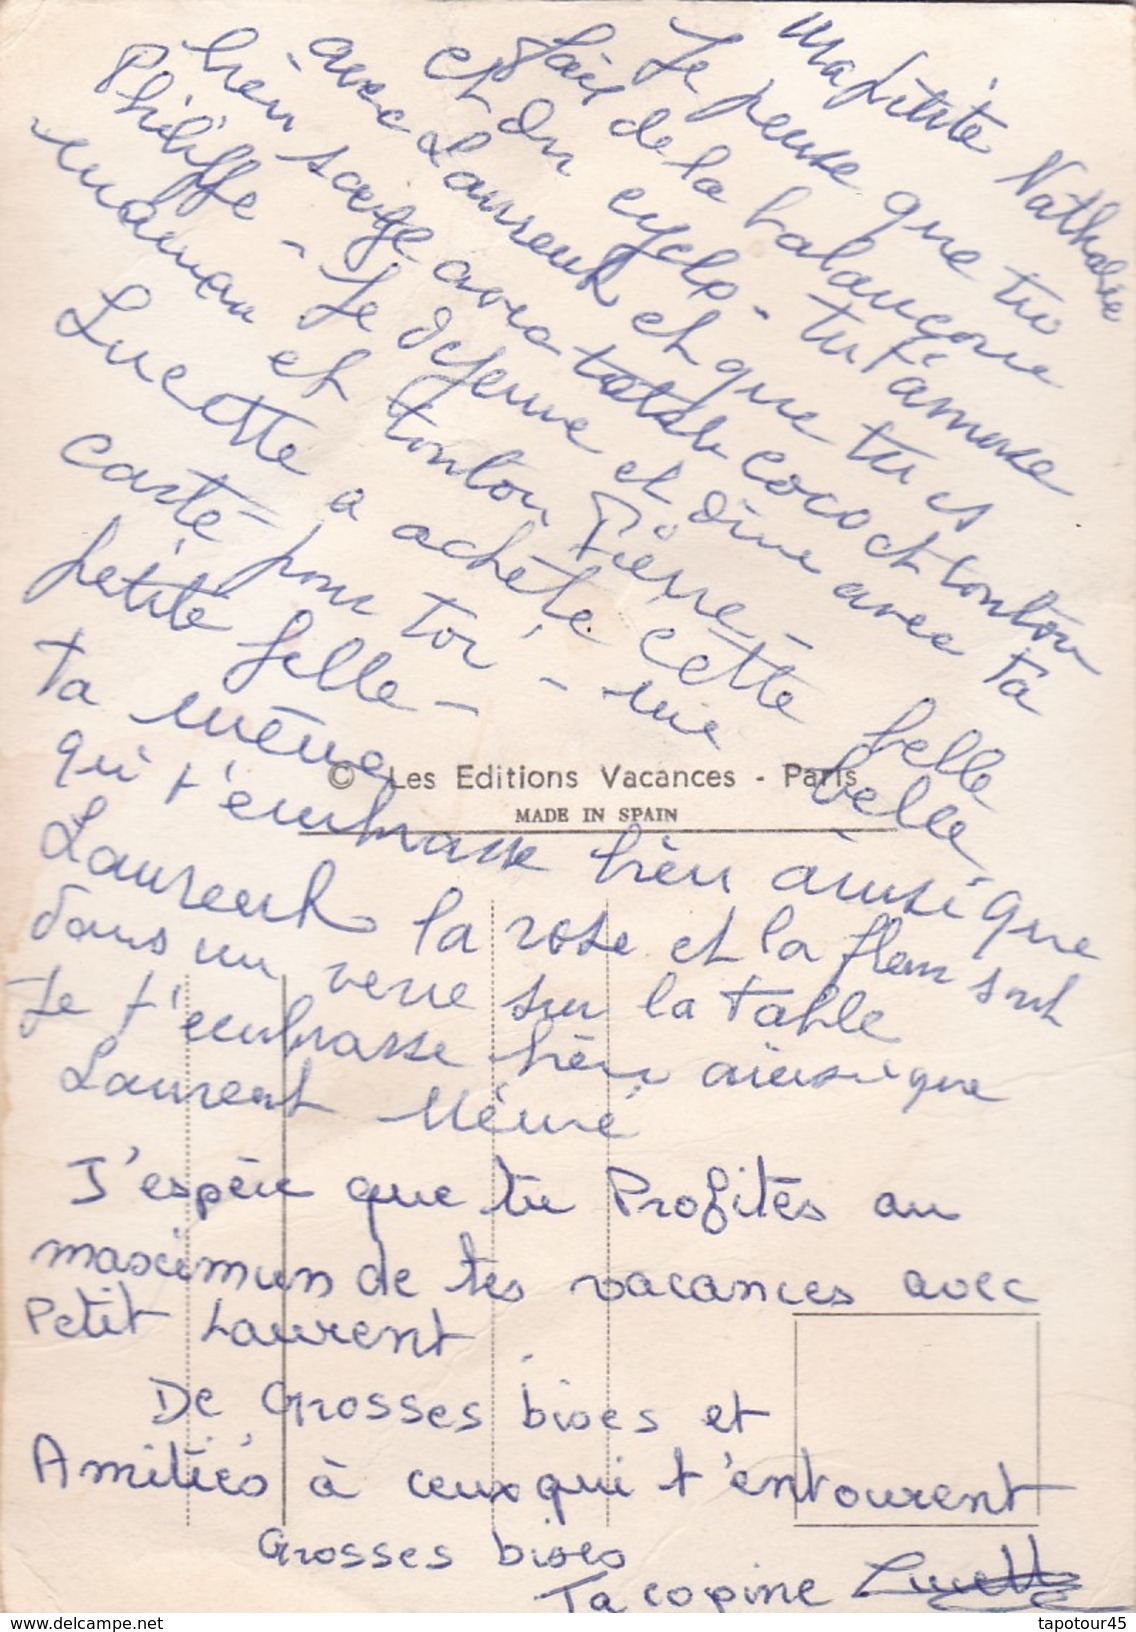 ma petite Nathalie
Je pense que tu
fais de la balançoire
et du cyclo - tu t'amuse
avec Laurent et que tu es
bien sage avec tata coco et tonton
Philiffe - Je dejeune et dîne avec ta
maman et tonton Pierre -
Lucette a acheté cette belle
carte pour toi - une belle
petite fille -
ta mémé
qui t'embrasse bien ainsi que
Laurent la rose et la fleur sont
dans un verre sur la table
Je t'embrasse bien ainsi que
Laurent Mémé
© Les Editions Vacances - Paris
MADE IN SPAIN
J'espère que tu Profites au
maximum de tes vacances avec
Petit Laurent
De Grosses bises et
Amitiés à ceux qui t'entourent
Grosses bises
Ta copine Lucette
tapotour45